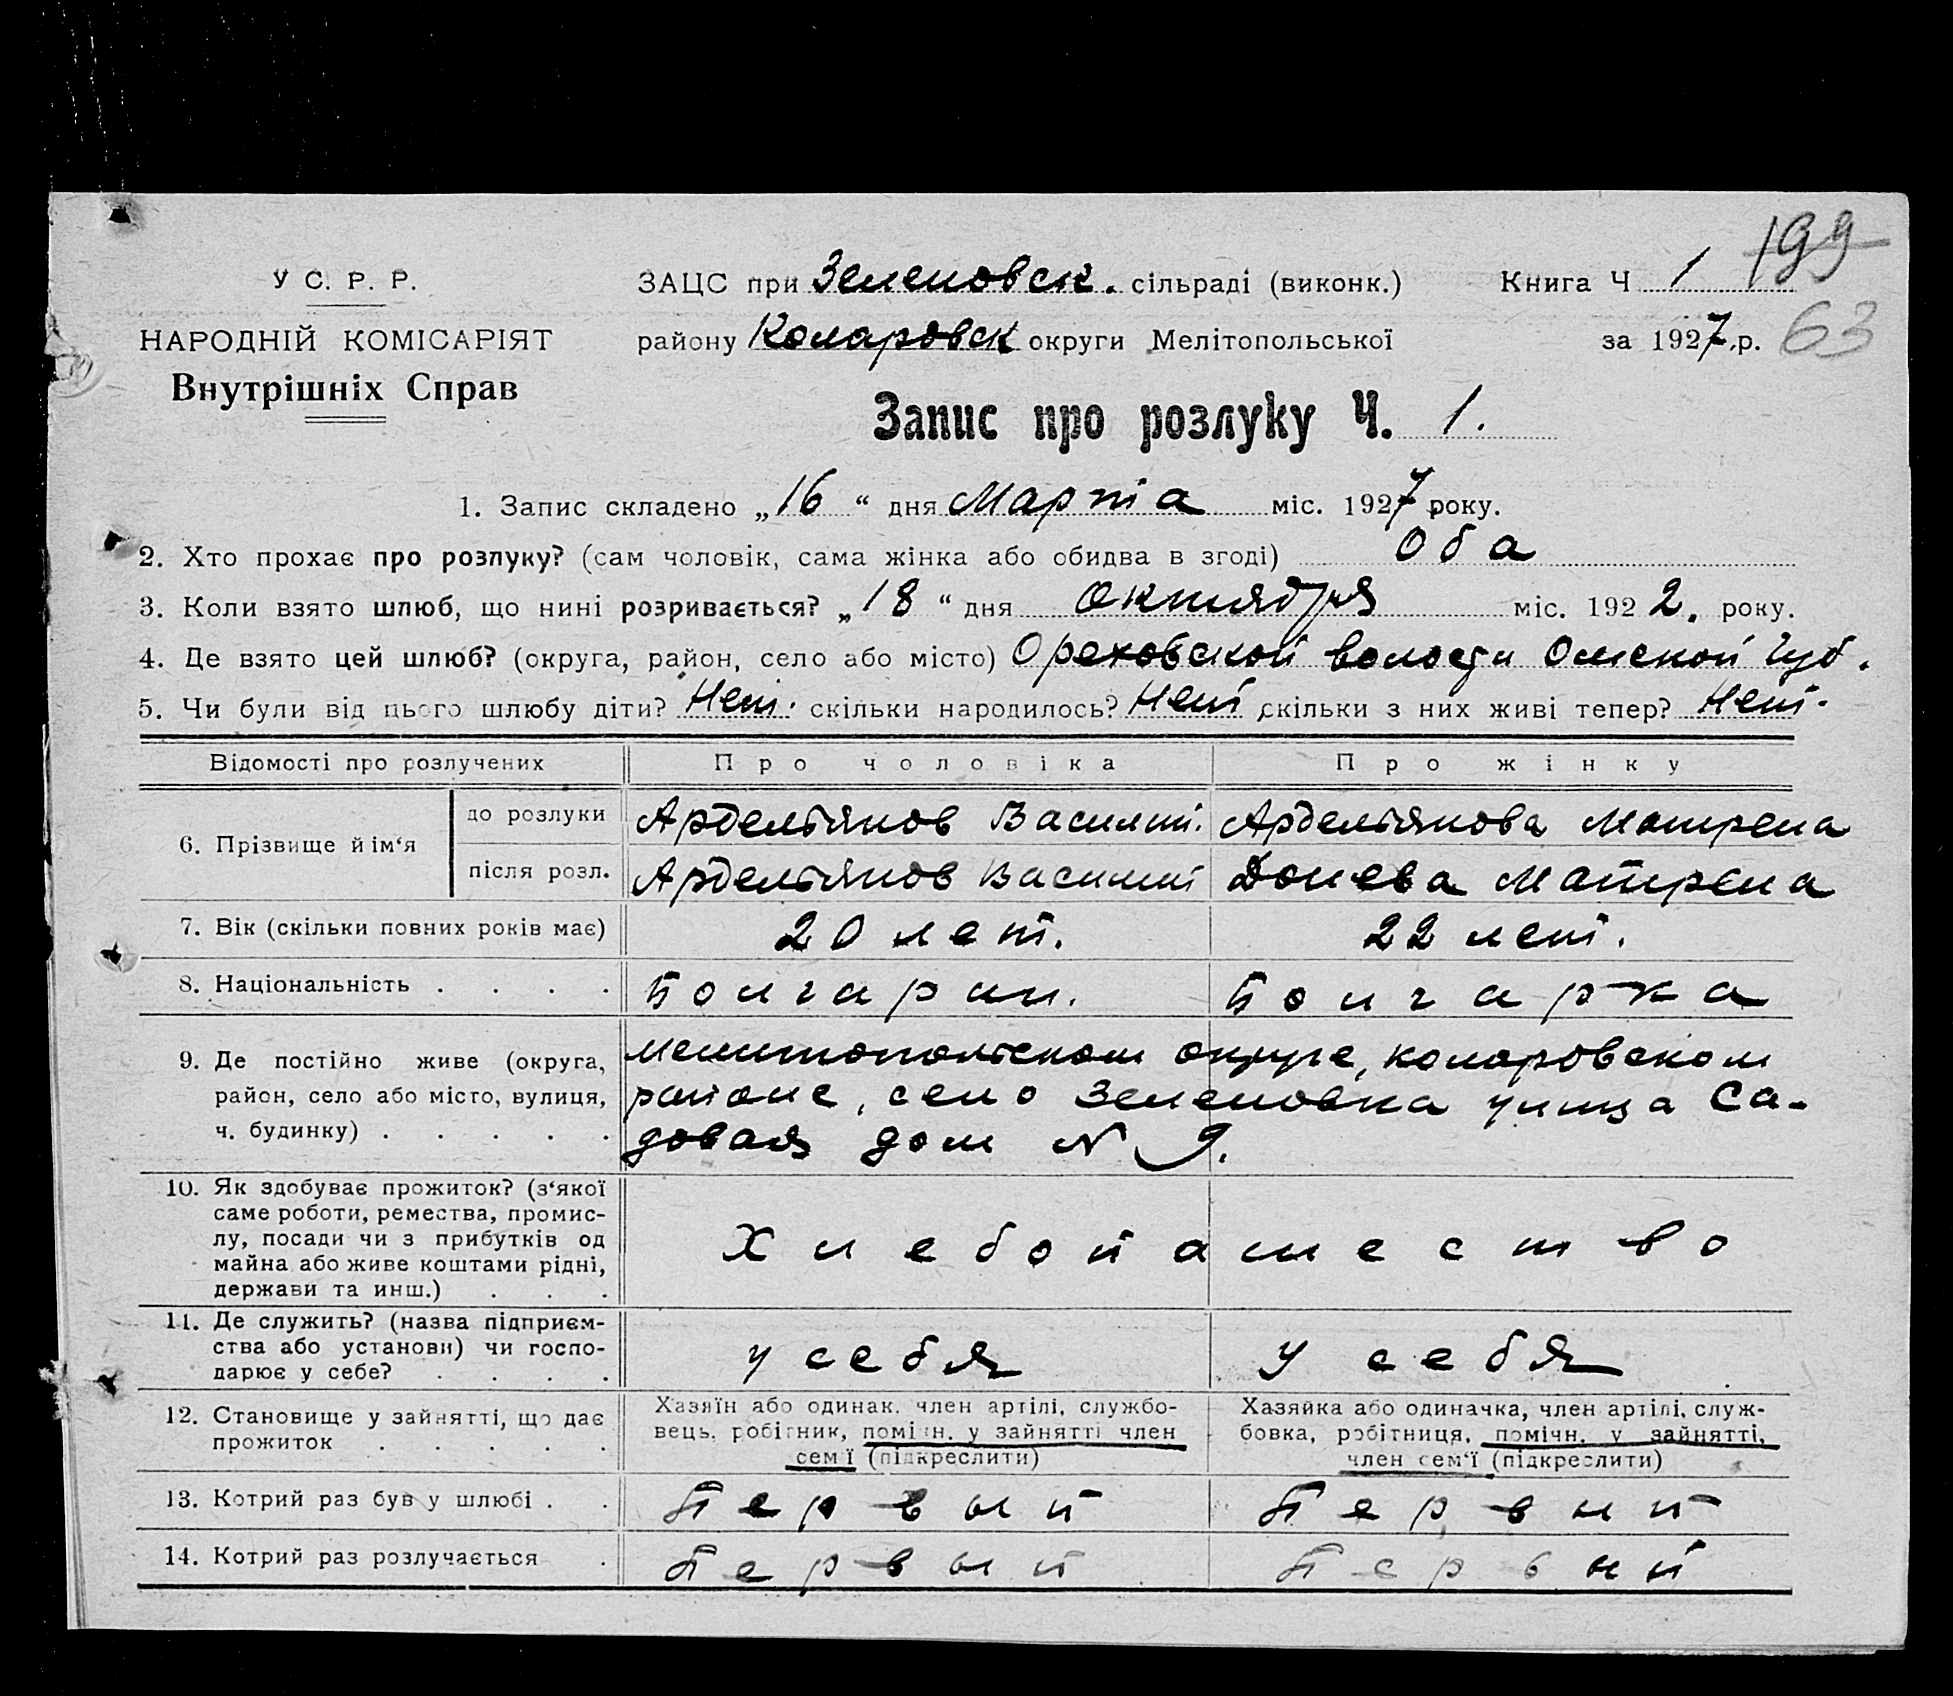 У С. Р. Р.
НАРОДНІЙ КОМІСАРІЯТ
Внутрішніх Справ
ЗАЦС при Зеленовск. сільраді (виконк.)
району Коларовск округи Мелітопольської
Книга Ч 1 199
за 1927 р. 63
Запис про розлуку Ч. 1.
1. Запис складено „16“ дня Марта міс. 1927 року.
2. Хто прохає про розлуку? (сам чоловік, сама жінка або обидва в згоді) Оба
3. Коли взято шлюб, що нині розривається? „18“ дня Октября міс. 1922. року.
4. Де взято цей шлюб? (округа, район, село або місто) Ореховской волости Омской Губ.
5. Чи були від цього шлюбу діти? Нет. скільки народилось? Нет скільки з них живі тепер? Нет.
Відомості про розлучених Про чоловіка Про жінку
6. Прізвище й ім‘я
до розлуки Ардельянов Василий. Ардельянова Матрена
після розл. Ардельянов Василий Донева Матрена
7. Вік (скільки повних років має) 20 лет. 22 лет.
8. Національність . . . . Болгарин. Болгарка
9. Де постійно живе (округа, район, село або місто, вулиця, ч. будинку) . . . . .
Мелитопольском округе, Коларовском
районе, село Зеленовка улица Са-
довая дом N 9.
10. Як здобуває прожиток? (з‘якої
саме роботи, ремества, промис-
лу, посади чи з прибутків од
майна або живе коштами рідні,
держави та инш.) . . .
Хлебопашество
11. Де служить? (назва підприєм-
ства або установи) чи госпо-
дарює у себе? . . . .
у себя у себя
12. Становище у зайнятті, що дає
прожиток . . . . .
Хазяїн або одинак. член артілі, службо-
вець, робітник, помічн. у зайнятті член
сем‘ї (підкреслити)
Хазяйка або одиначка, член артілі, служ-
бовка, робітниця, помічн. у зайнятті,
член сем‘ї (підкреслити)
13. Котрий раз був у шлюбі . . Первый Первый
14. Котрий раз розлучається . Первый Первый